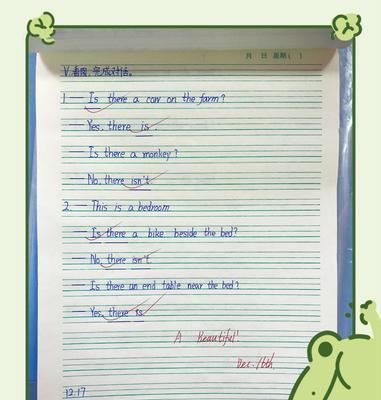 月 日 星期( )
V.看图,完成对话。
1. — Is there a cow on the farm?
— Yes, there is.
— Is there a monkey?
— No, there isn't.
2. — This is a bedroom.
— Is there a bike beside the bed?
— No, there isn't.
— Is there an end table near the bed?
— Yes, there is.
A Beautiful!
Dec. 16th.
12.17